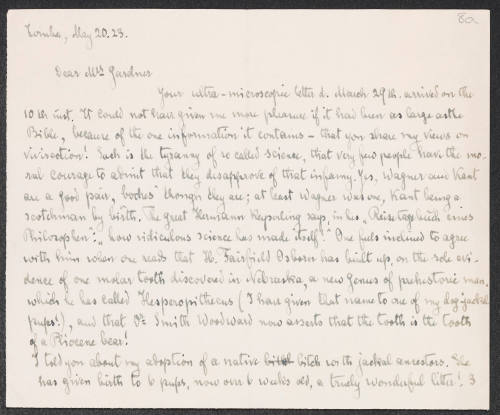 8a
Tomba, May 20.23.
Dear Mrs Gardner
Your ultra-microscopic letter d. March 29th. arrived on the
10th inst. It could not have given me more pleasure if it had been as large as the
Bible, because of the one information it contains – that you share my views on
vivisection! Such is the tyranny of so called science, that very few people have the mo-
ral courage to admit that they disapprove of that infamy. Yes, Wagner and Kant
are a good pair, "boches" though they are; at least Wagner was one, Kant being a
scotchman by birth. The great Hermann Keyserling says, in his "Reisetagebuch eines
Philosophen": "how ridiculous science has made itself!" One feels inclined to agree
with him when one reads that H. Fairfield Osborn has built up, on the sole evi-
dence of one molar tooth discovered in Nebraska, a new Genus of prehistoric man,
which he has called Hesperopithecus (I have given that name to one of my dog-jackal
pups!), and that Dr Smith Woodward now asserts that the tooth is the tooth
of a Pliocene bear!
I told you about my adoption of a native bitch with jackal ancestors. She
has given birth to 6 pups, now over 6 weeks old, a truely wonderful litter! 3